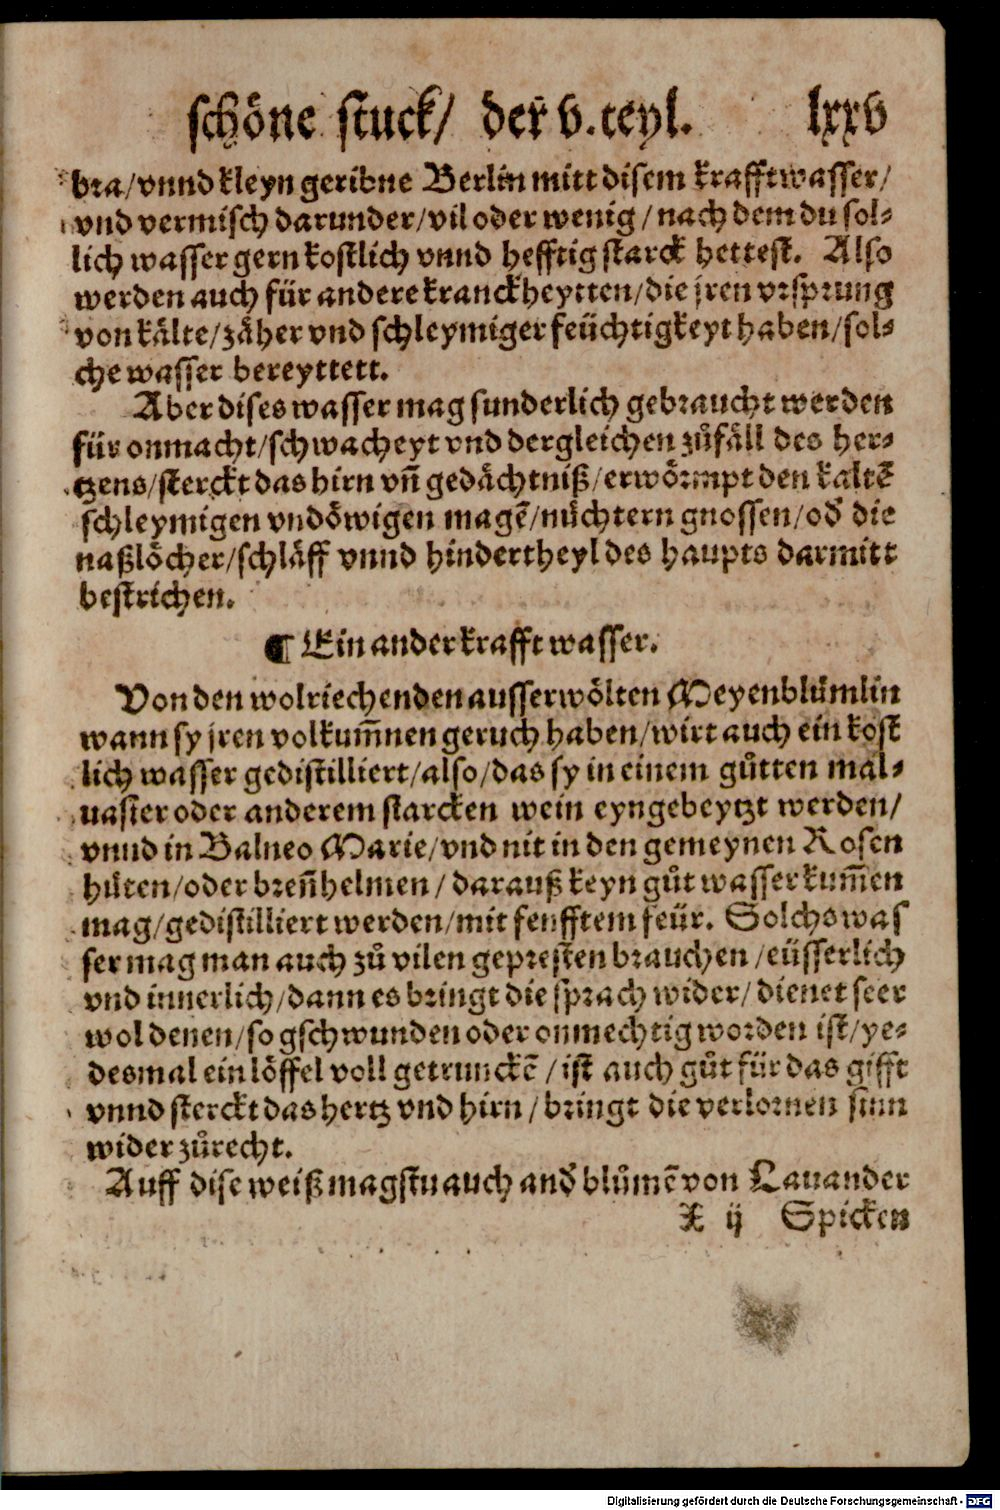 schöne stuck/ der v. teyl. lxxv
bra/vnnd kleyn geribne Berlin mitt disem krafftwasser/
vnd vermisch darunder/vil oder wenig/nach dem du sol⸗
lich wasser gern kostlich vnnd hefftig starck hettest. Also
werden auch für andere kranckheytten/die jren vrsprung
von kälte/zäher vnd schleymiger feüchtigkeyt haben/sol⸗
che wasser bereyttett.
Aber dises wasser mag sunderlich gebraucht werden
für onmacht/schwacheyt vnd dergleichen zůfäll des her⸗
tzens/sterckt das hirn vñ gedächtniß/erwörmpt den kaltẽ
schleymigen vndöwigen magẽ/nüchtern gnossen/oď die
naßlöcher/schläff vnnd hindertheyl des haupts darmitt
bestrichen.
¶ Ein ander krafft wasser.
Von den wolriechenden ausserwölten Meyenblümlin
wann sy jren volkum̃nen geruch haben/wirt auch ein kost
lich wasser gedistilliert/also/das sy in einem gůtten mal⸗
uasier oder anderem starcken wein eyngebeytzt werden/
vnnd in Balneo Marie/vnd nit in den gemeynen Rosen
hüten/oder breñhelmen/darauß keyn gůt wasser kum̃en
mag/gedistilliert werden/mit senfftem feür. Solchs was
ser mag man auch zů vilen gepresten brauchen/eüsserlich
vnd innerlich/dann es bringt die sprach wider/dienet seer
wol denen/so gschwunden oder onmechtig worden ist/ye⸗
desmal ein löffel voll getrunckẽ/ist auch gůt für das gifft
vnnd sterckt das hertz vnd hirn/bringt die verlornen sinn
wider zůrecht.
Auff dise weiß magstu auch anď blůmẽ von Lauander
X ij Spicken
Digitalisierung gefördert durch die Deutsche Forschungsgemeinschaft - DFG